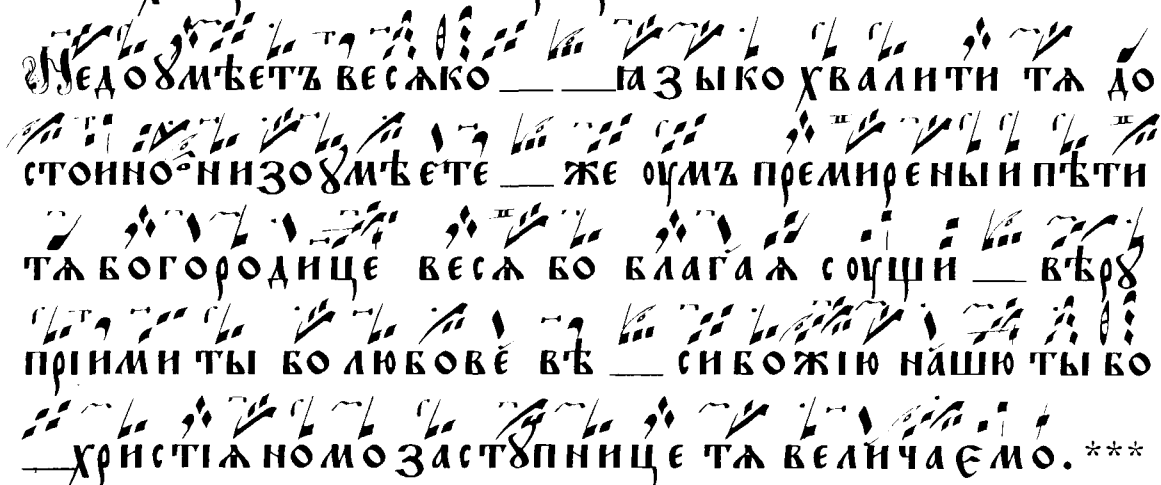 Недоꙋмѣетъ весѧко ___ ___ ꙗзыко хвалити тѧ до
стоино низоꙋмѣете ___ же оумъ премирены и пѣти
тѧ богородице весѧ бо благаꙗ соущи ___ вѣрꙋ
прїими ты бо любове вѣ ___ си божїю нашю ты бо
___ христїѧномо застꙋпнице тѧ величаѥмо. ***